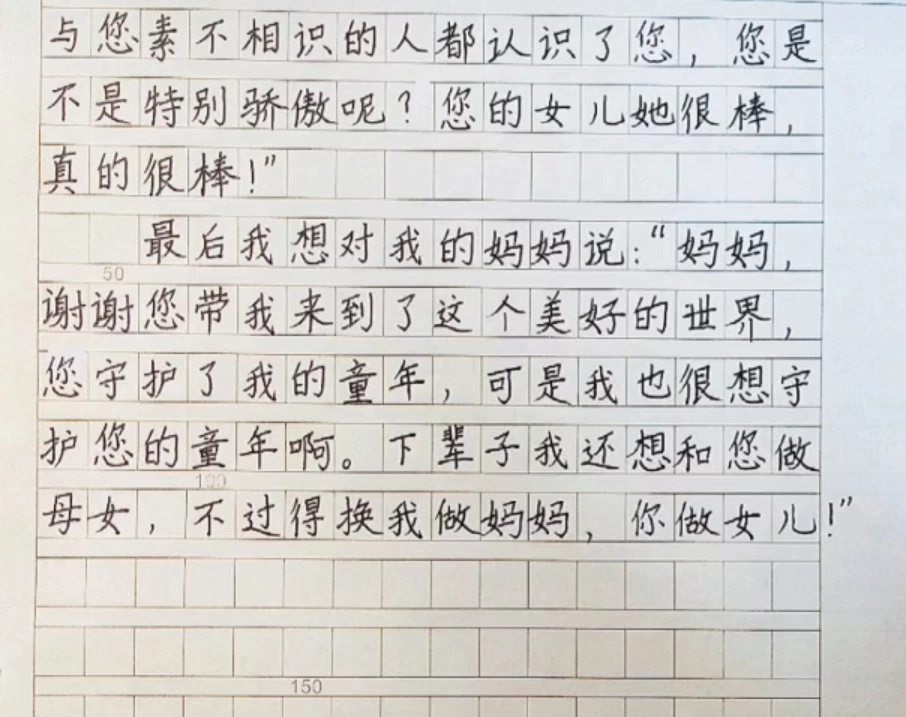 与您素不相识的人都认识了您，您是
不是特别骄傲呢？您的女儿她很棒，
真的很棒！”
最后我想对我的妈妈说：“妈妈，
50
谢谢您带我来到了这个美好的世界，
您守护了我的童年，可是我也很想守
护您的童年啊。下辈子我还想和您做
100
母女，不过得换我做妈妈，你做女儿！”
150